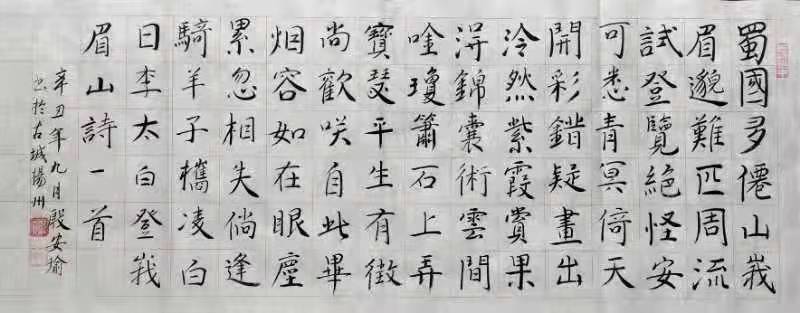 蜀國多僊山峩
眉邈難匹周流
試登覽絕怪安
可悉青冥倚天
開彩錯疑畫出
泠然紫霞賞果
淂錦囊術雲間
唫瓊簫石上弄
寶瑟平生有徵
尚歡咲自此畢
烟容如在眼塵
累忽相失倘逢
騎羊子攜凌白
日李太白登峩
眉山詩一首
辛丑年九月殷安瑜
书於古城揚州